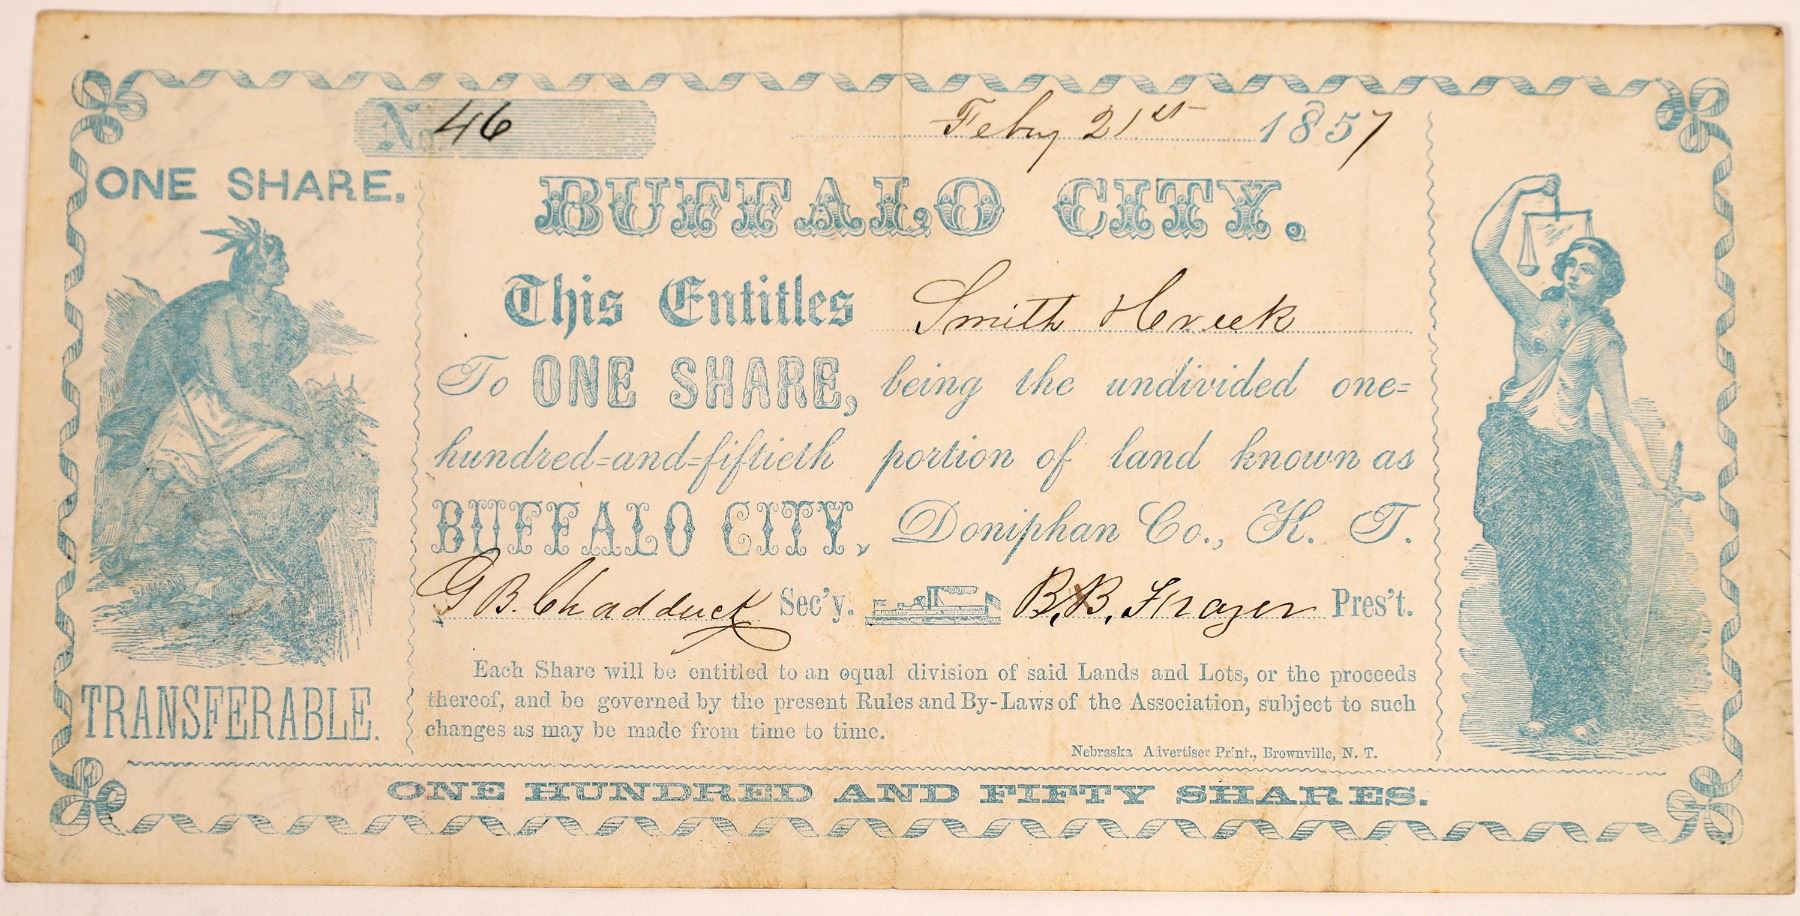 No. 46
Feby 21st 1857
ONE SHARE.
BUFFALO CITY.
This Entitles Smith
To ONE SHARE, being the undivided one=
hundred=and=fiftieth portion of land known as
BUFFALO CITY, Doniphan Co., K. T.
G B. Chadduck Sec'y. B. B. Frazer Pres't.
Each Share will be entitled to an equal division of said Lands and Lots, or the proceeds
thereof, and be governed by the present Rules and By-Laws of the Association, subject to such
changes as may be made from time to time.
Nebraska Advertiser Print., Brownville, N. T.
TRANSFERABLE.
ONE HUNDRED AND FIFTY SHARES.